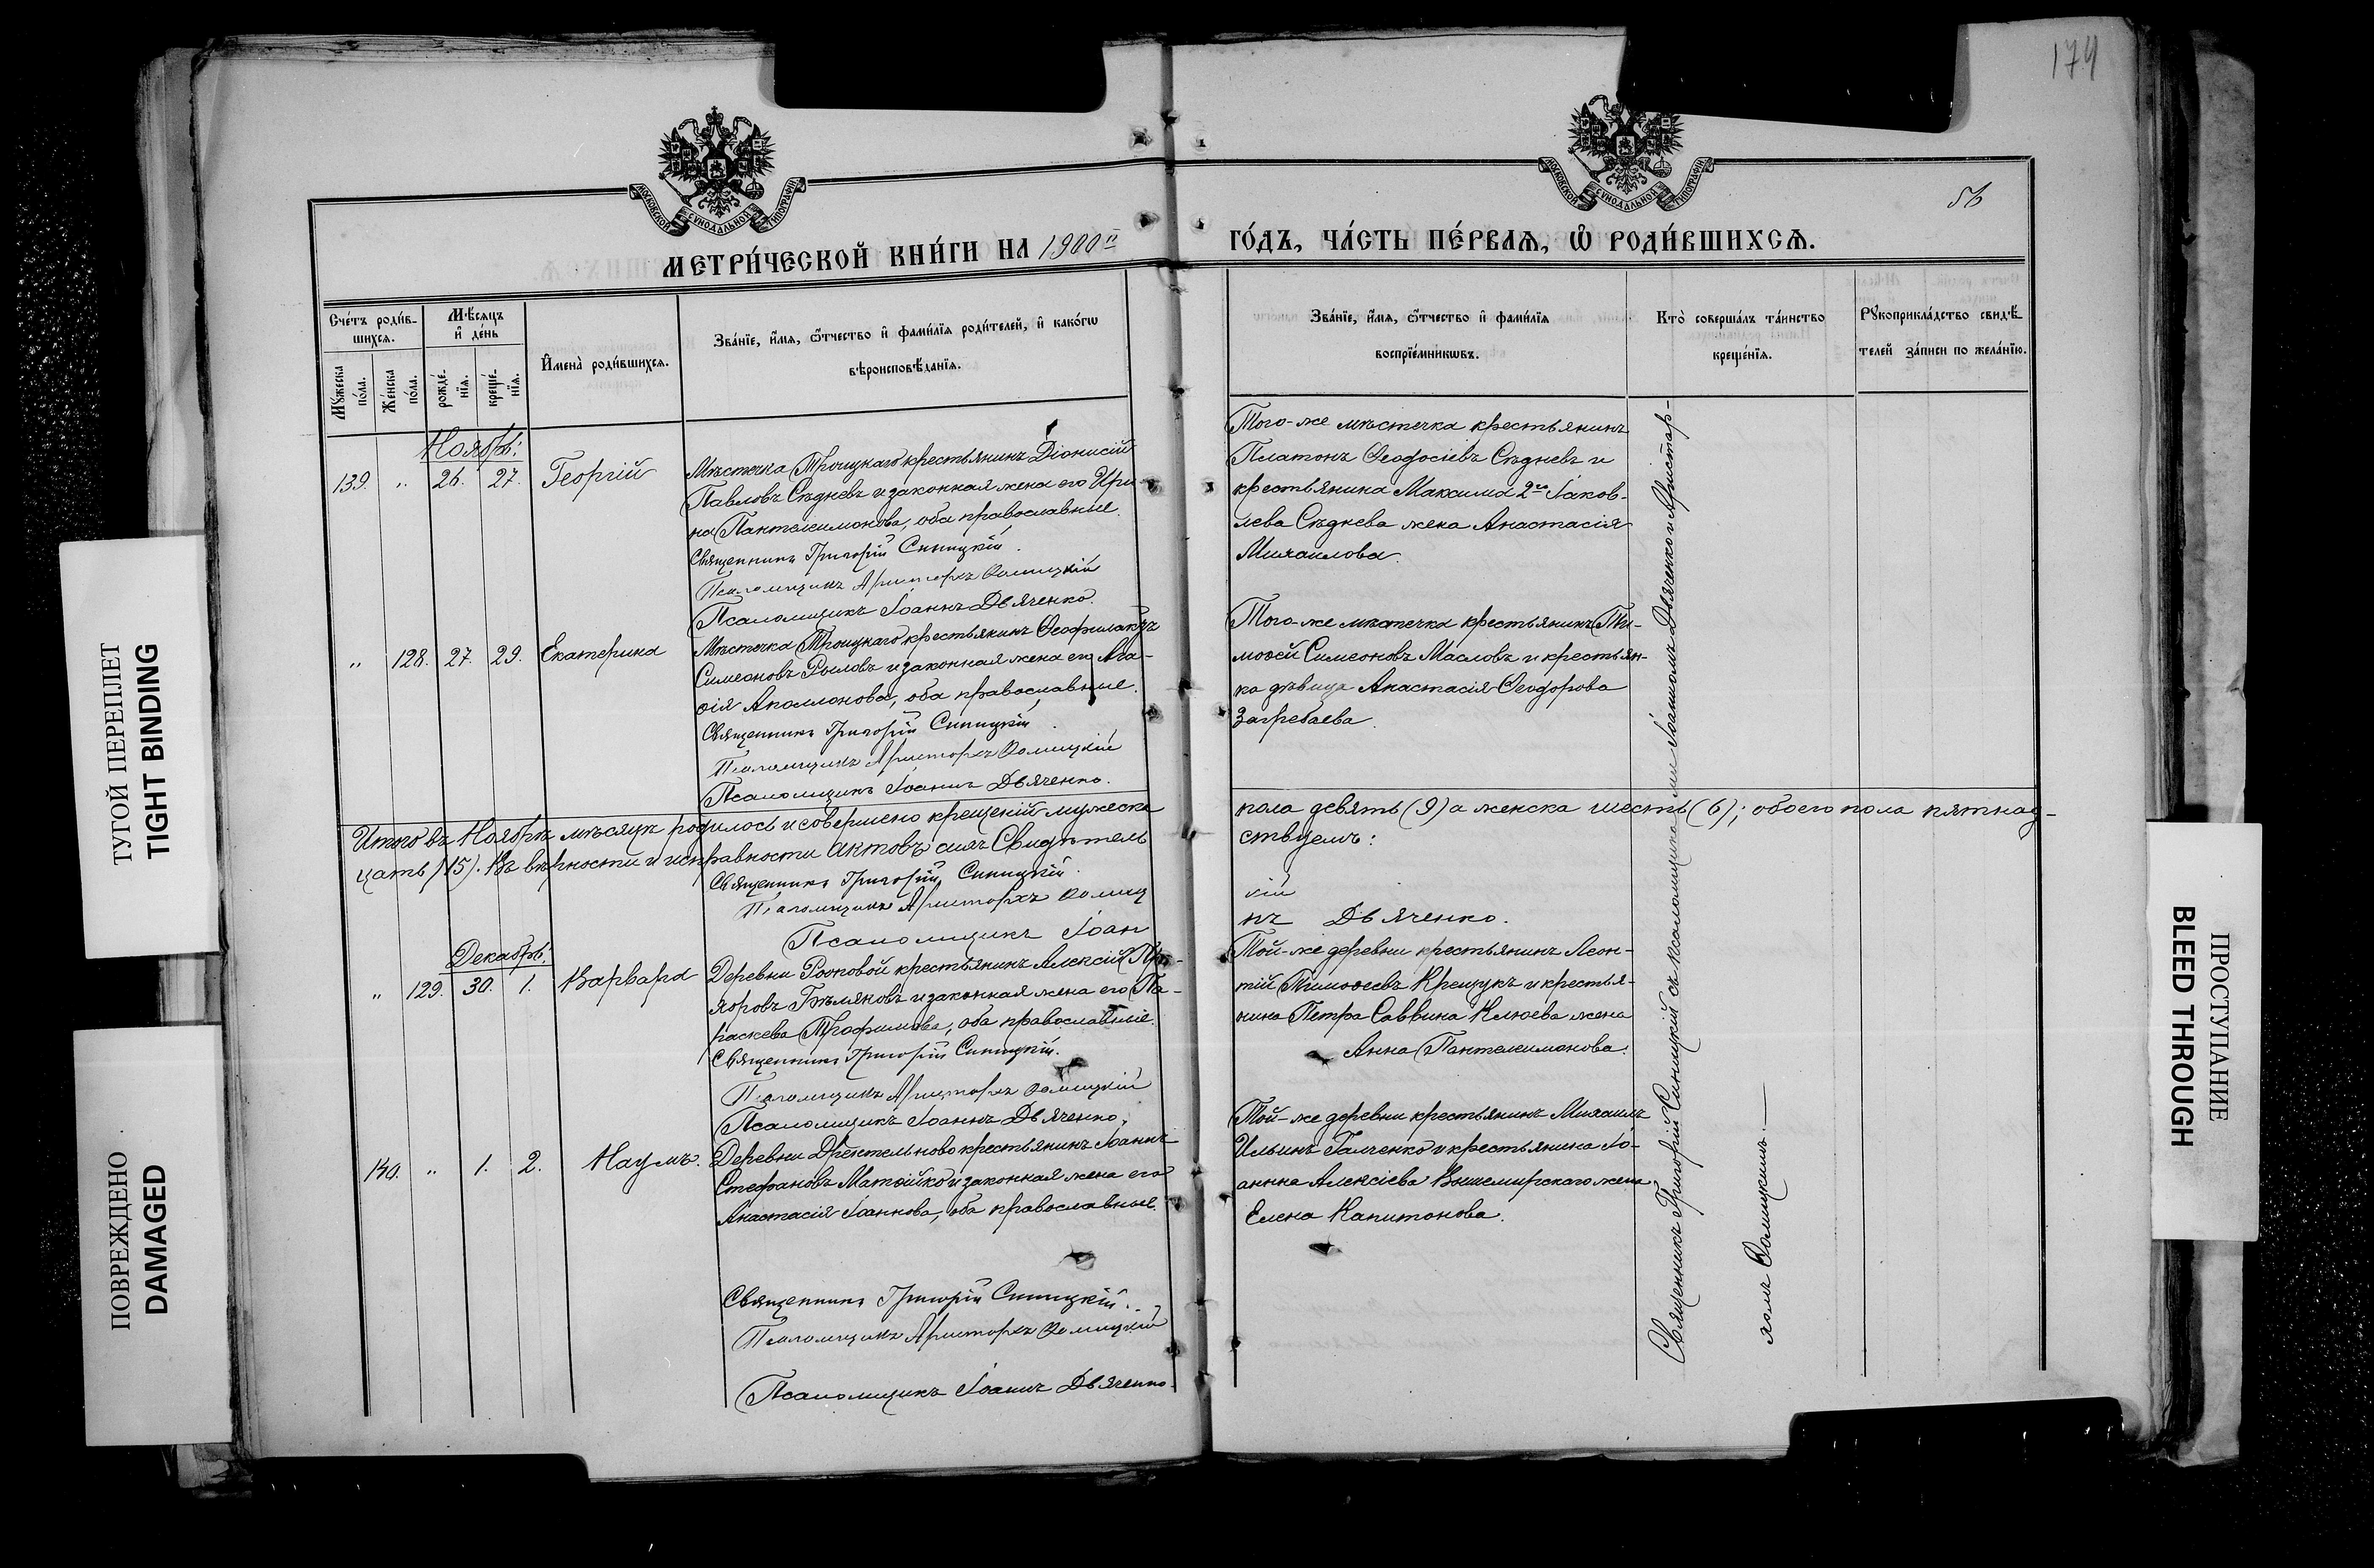 174
56
МОСКОВСКОЙ СУНОДАЛЬНОЙ ТИПОГРАФІИ
МОСКОВСКОЙ СУНОДАЛЬНОЙ ТИПОГРАФІИ
МЕТРИ́ЧЕСКОЙ КНИ́ГИ НА 1900й
ГО́ДЪ, ЧА́СТЬ ПЕ́РВАѦ, Ѡ҆ РОДИ́ВШИХСѦ.
Сче́тъ роди́в-
шихсѧ.
Мꙋ́жеска
по́ла.
Же́нска
по́ла.
Мѣ́сѧцъ
и҆ де́нь
рожде́-
нїѧ.
креще́-
нїѧ.
И҆мена̀ роди́вшихсѧ.
Зва́нїе, и҆́мѧ, ѻ҆́тчество и҆ фами́лїѧ роди́телей, и҆ како́гѡ
вѣроисповѣ́данїѧ.
Зва́нїе, и҆́мѧ, ѻ҆́тчество и҆ фами́лїѧ
воспрїе́мникѡвъ.
Кто̀ соверша́лъ та́инство
креще́нїѧ.
Рꙋкоприкла́дство свидѣ́-
телей за́писи по жела́нїю.
Ноябрь:
139. „ 26. 27. Георгій
Мѣстечка Троицкаго крестьянинъ Діонисій
Павловъ Сѣдневъ и законная жена его Ири-
на Пантелеимонова, оба православные.
Священникъ Григорій Синицкій.
Псаломщикъ Аристархъ Ѳомицкій
Псаломщикъ Іоаннъ Дьяченко.
Того-же мѣстечка крестьянинъ
Платонъ Ѳеодосіевъ Сѣдневъ и
крестьянина Максима 2го Іаков-
лева Сѣднева жена Анастасія
Михаилова.
„ 128. 27. 29. Екатерина
Мѣстечка Троицкаго крестьянинъ Ѳеофилактъ
Симеоновъ Рыловъ и законная жена его Ага-
ѳія Аполлонова, оба православные.
Священникъ Григорій Синицкій.
Псаломщикъ Аристархъ Ѳомицкій
Псаломщикъ Іоаннъ Дьяченко.
Того-же мѣстечка крестьянинъ Ти-
моѳей Симеоновъ Масловъ и крестьян-
ка дѣвица Анастасія Ѳеодорова
Загребаева.
Итого въ Ноябрѣ мѣсяцѣ родилось и совершено крещеній мужеска
пола девять (9) а женска шесть (6); обоего пола пятнад-
цать (15). Въ вѣрности и исправности актовъ сихъ Свидѣтель
ствуемъ:
Священникъ Григорій Синицкій.
Псаломщикъ Аристархъ Ѳомиц
кій
Псаломщикъ Іоан
нъ Дьяченко.
Декабрь.
„ 129. 30. 1. Варвара
Деревни крестьянинъ Алексій
Бѣляковъ и законная жена его Па-
раскева Трофимова, оба православные.
Священникъ Григорій Синицкій.
Псаломщикъ Аристархъ Ѳомицкій
Псаломщикъ Іоаннъ Дьяченко.
Той-же деревни крестьянинъ Леон-
тій Тимоѳеевъ Крещукъ и крестья-
нина Петра Саввина Клюева жена
Анна Пантелеимонова.
140. „ 1. 2. Наумъ.
Деревни крестьянинъ Іоаннъ
Стефановъ Матвійко и законная жена его
Анастасія Іоаннова, оба православные.
Священникъ Григорій Синицкій.
Псаломщикъ Аристархъ Ѳомицкій
Псаломщикъ Іоаннъ Дьяченко.
Той-же деревни крестьянинъ Михаилъ
Ильинъ Галченко и крестьянина Іо-
анна Алексіева Вышемирскаго жена
Елена Капитонова.
Священникъ Григорій Синицкій съ псаломщиками Іоанномъ Дьяченко и Аристар-
хомъ Ѳомицкимъ.
ТУГОЙ ПЕРЕПЛЕТ
TIGHT BINDING
ПОВРЕЖДЕНО
DAMAGED
ПРОСТУПАНИЕ
BLEED THROUGH